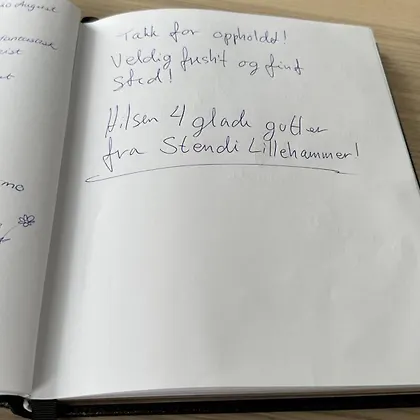 10 August
Takk for oppholdt!
Veldig fresht og fint
Sted!
Hilsen 4 glade gutter
fra Stendi Lillehammer!
mo